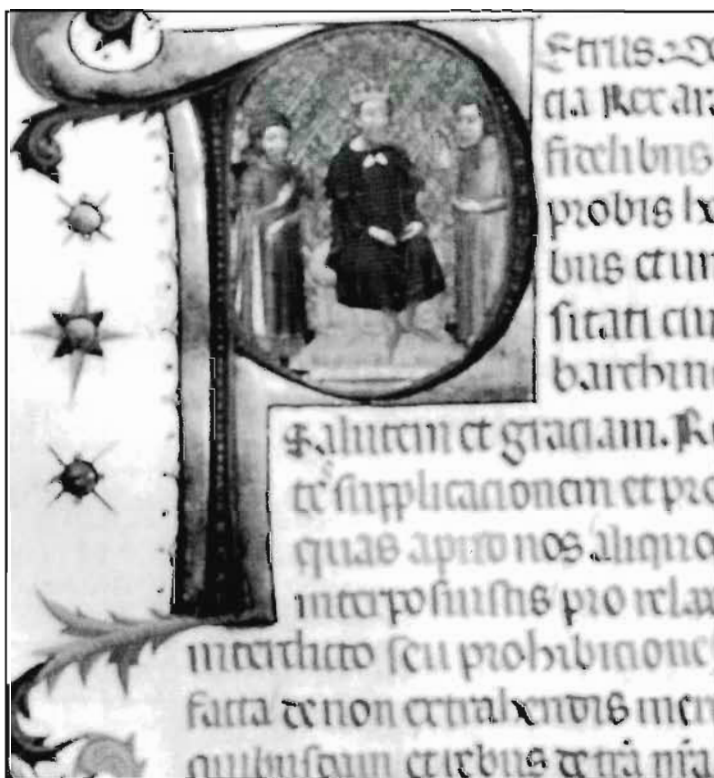 Etrus. De
cia Rex ar
fidelibus
probis h
bus et un
sitati
barchin
Salutem et graciam. R
te supplicacionem et pr
quas apud nos aliquo
interposuistis pro relax
interdicto seu prohibicione
facta de non extrahendis mer
quibusdam et rebus de tra nra